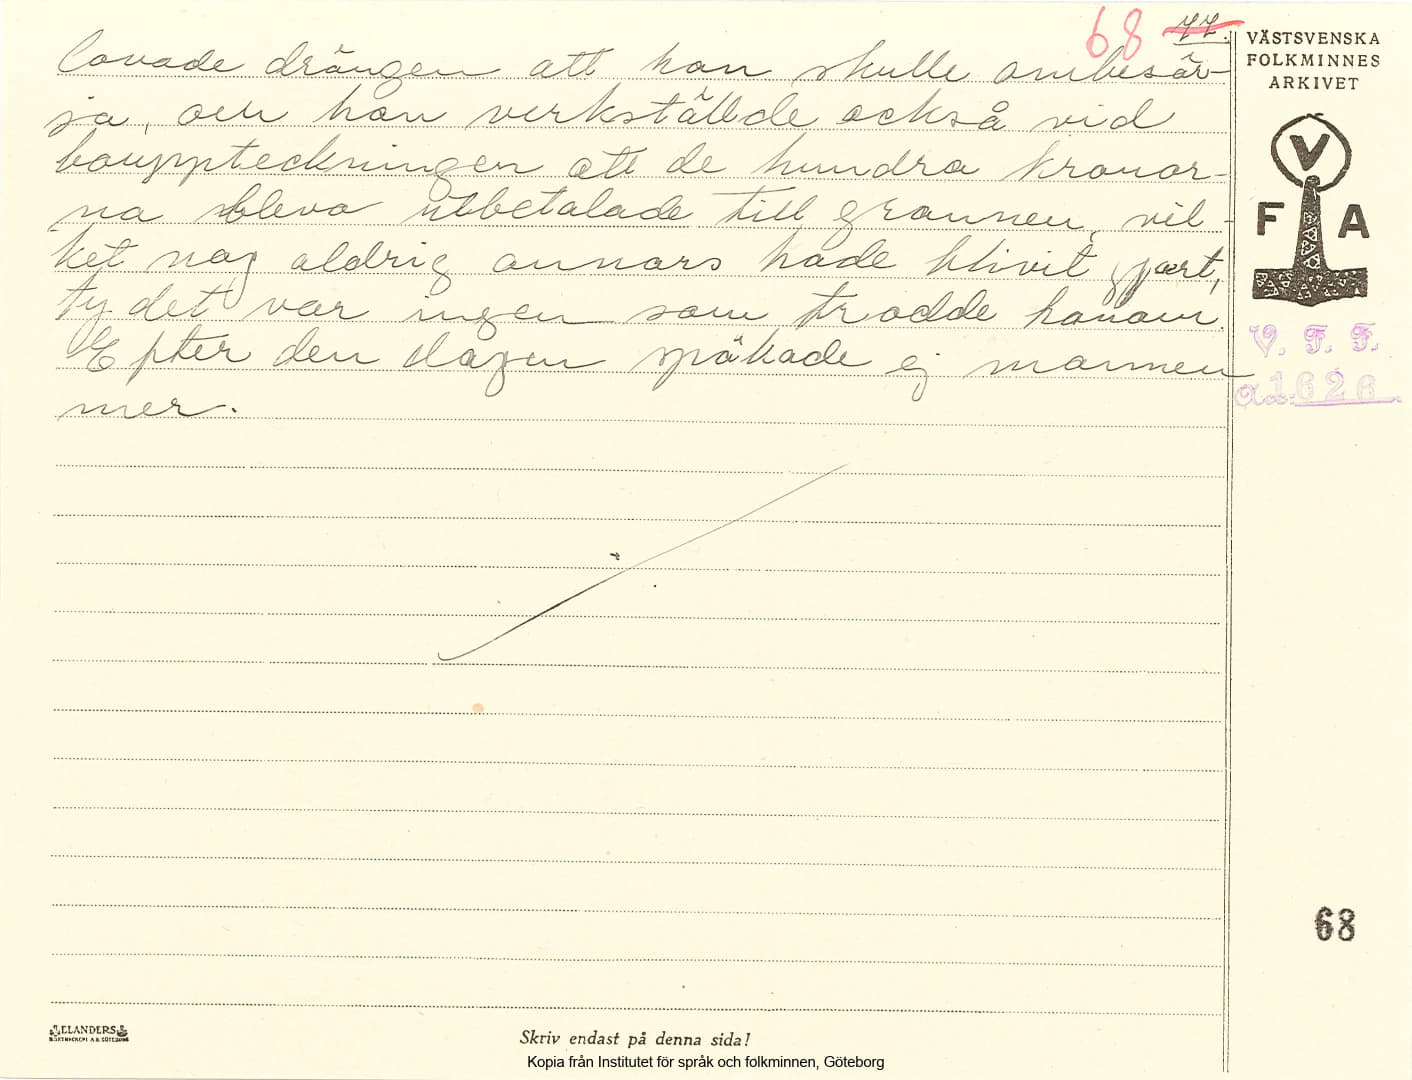 68 77.
lovade drängen att han skulle ombesör-
ja, och han verkställde också vid
bouppteckningen att de hundra kronor-
na blevo utbetalade till grannen, vil-
ket nog aldrig annars hade blivit gjort,
ty det var ingen som trodde honom.
Efter den dagen spökade ej mannen
mer.
VÄSTSVENSKA
FOLKMINNES
ARKIVET
V
F A
V. F. F.
Acc. 1626.
68
ELANDERS
BOKTRYCKERI A.B. GÖTEBORG
Skriv endast på denna sida!
Kopia från Institutet för språk och folkminnen, Göteborg